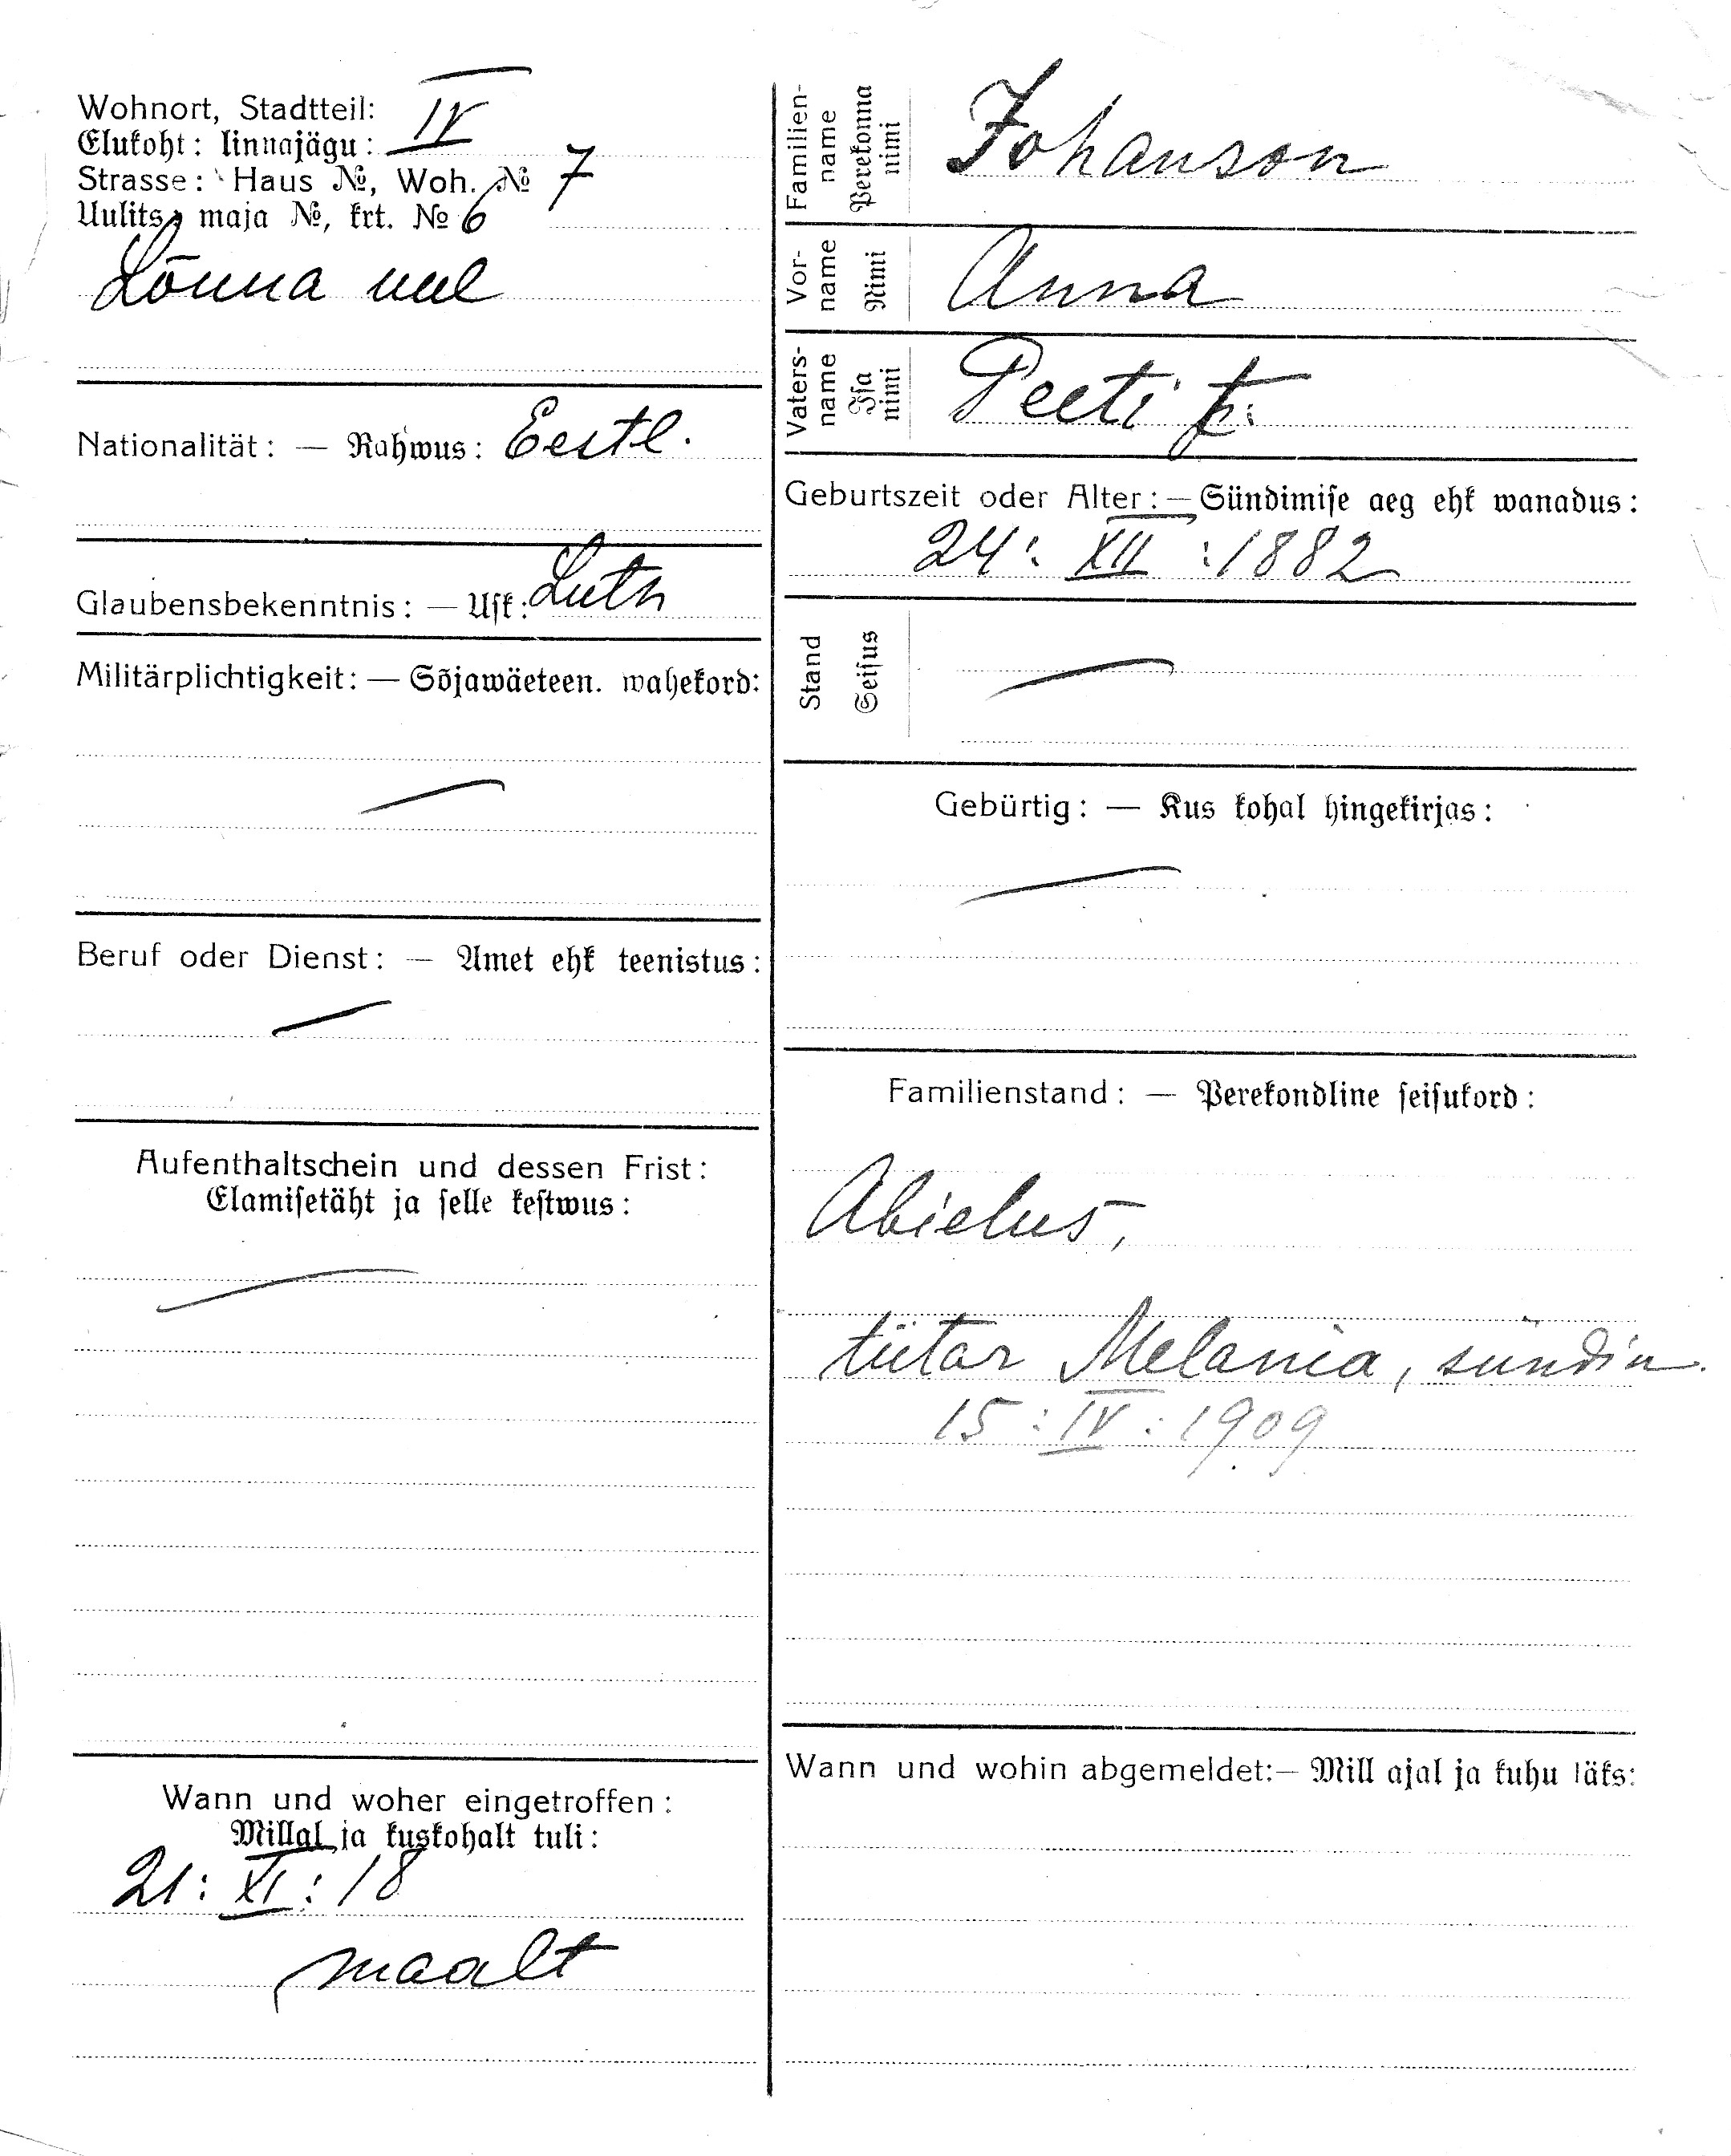 Wohnort, Stadtteil: IV
Elukoht: linnajägu:
Strasse: Haus №, Woh. № 7
Uulits, maja №, krt. № 6
Lõuna uul
Nationalität: — Rahwus: Eestl.
Glaubensbekenntnis: — Usk: Luth
Militärplichtigkeit: — Sõjawäeteen. wahekord:
—
Beruf oder Dienst: — Amet ehk teenistus:
—
Aufenthaltschein und dessen Frist:
Elamisetäht ja selle kestwus:
—
Wann und woher eingetroffen:
Millal ja kuskohalt tuli:
21: XI: 18
maalt
Familien-
name
Perekonna
nimi
Johanson
Vor-
name
Nimi
Anna
Vaters-
name
Isa
nimi
Peeti t.
Geburtszeit oder Alter: — Sündimise aeg ehk wanadus:
24: XII :1882
Stand
Seisus
—
Gebürtig: — Kus kohal hingekirjas:
—
Familienstand: — Perekondline seisukord:
Abielus,
tütar Melania, sündin.
15: IV : 1909
Wann und wohin abgemeldet:— Mill ajal ja kuhu läks: